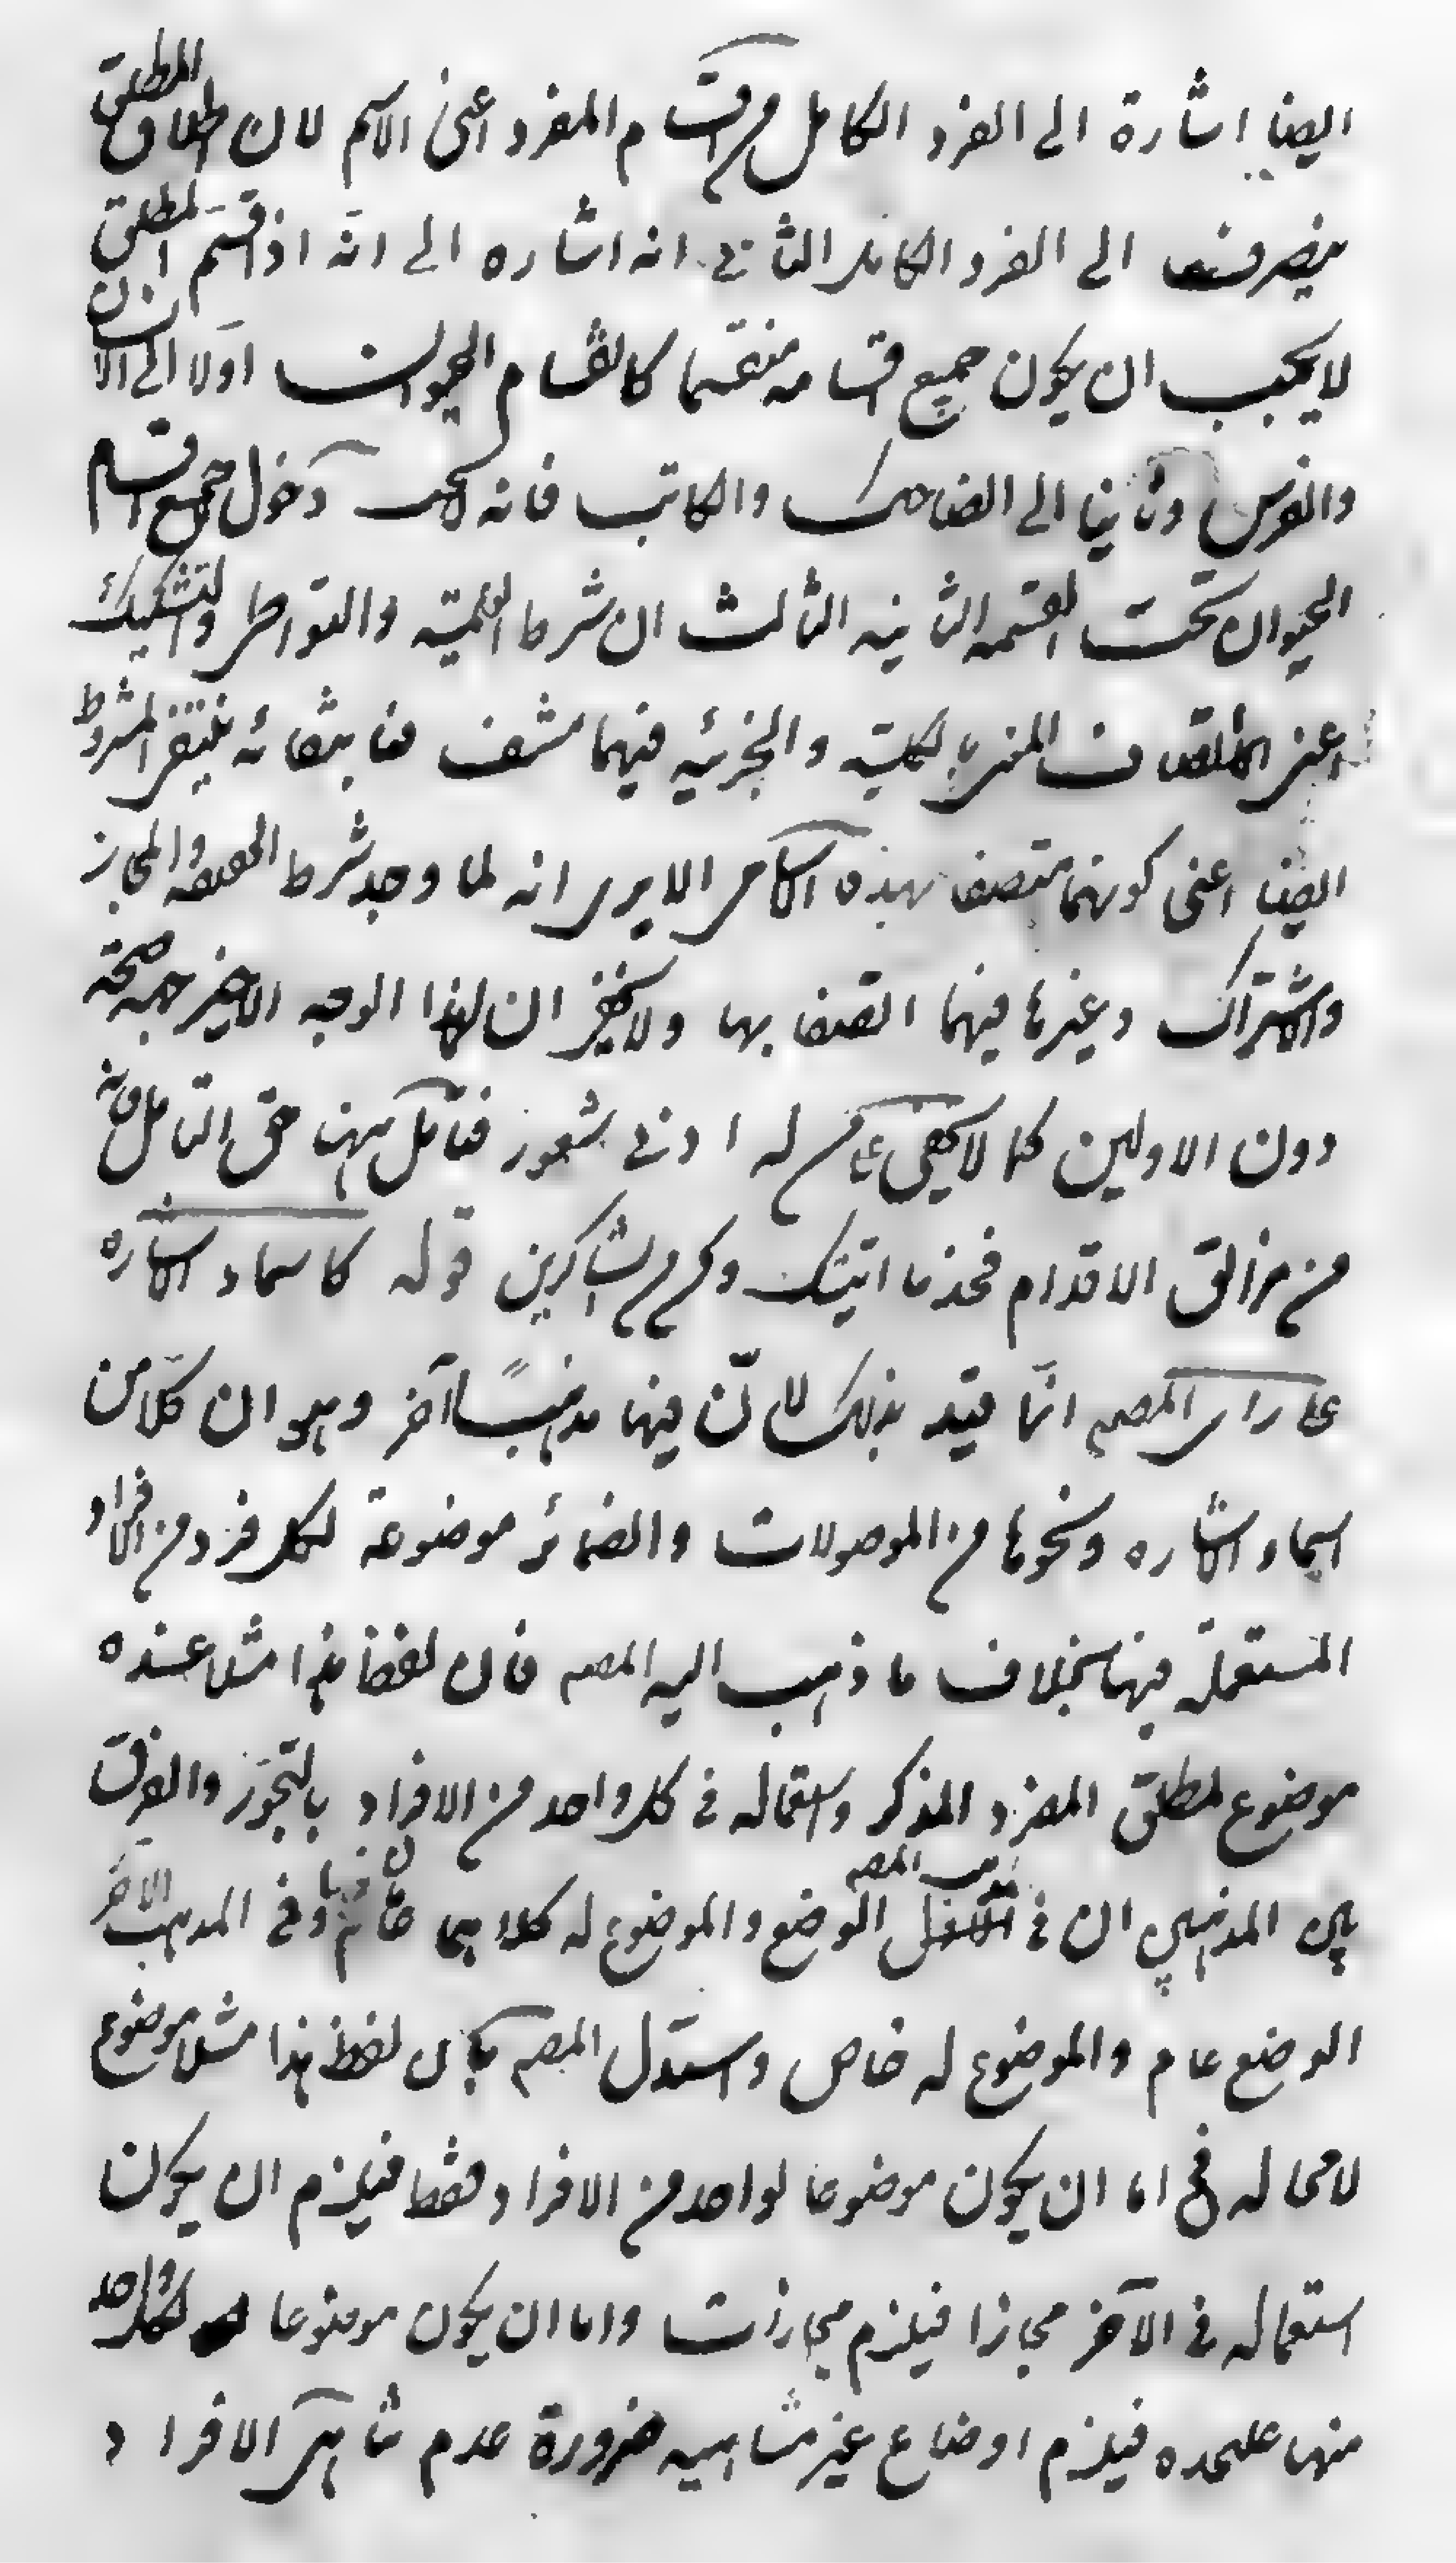 ايضا اشارة الى الفرد الكامل من اقسام المفرد اعنى الاسم لان اطلاق المطلق
ينصرف الى الفرد الكامل الثاني انه اشاره الى انه اذا قسم المطلق
لا يجب ان يكون جميع اقسامه منقسما كانقسام الحيوان اولا الى الانسان
والفرس وثانيا الى الضاحك والكاتب فانه دخول جميع اقسام
الحيوان تحت القسمه الثانيه الثالث ان شرط العلميته والتواطى والتشكيك
اعنى اتصاف المعنى بالكليته والجزئيه فيهما منتف فبانتفائه ينتفى المشروط
ايضا اعنى كونهما متصفا بهذه الاسامى الا يرى انه لما وجد شرط الحقيقه والمجاز
والاشتراك وغيرها فيهما اتصفا بها ولا يخفى ان لهذا الوجه الاخير جهه صحته
دون الاولين كما لا يخفى على من له ادنى شعور فتامل ههنا حق التامل فانه
من مزالق الاقدام فخذ ما اتيتك وكن من الشاكرين قوله كاسماء الاشاره
على راى المصه انما قيد بذلك لانّ فيها مذهبًا آخر وهو ان كلا من
اسماء الاشاره ونحوها من الموصولات والضمائر موضوعة لكل فرد من الافراد
المستعملة فيها بخلاف ما ذهب اليه المصه فان لفظ هذا مثلا عنده
موضوع لمطلق المفرد المذكر واستعماله فى كل واحد من الافراد بالتجوّز والفرق
بين المذهبين ان فى مذهب المصه الوضع والموضوع له كلاهما عامان وفى المذهب الآخر
الوضع عام والموضوع له خاص واستدل المصه بان لفظ هذا مثلا موضوع
لا محاله فح اما ان يكون موضوعا لواحد من الافراد فقط فيلزم ان يكون
استعماله فى الآخر مجازا فيلزم مجازات واما ان يكون موضوعا لكل واحد
منها عليحده فيلزم اوضاع غير متناهيه ضرورة عدم تناهى الافراد